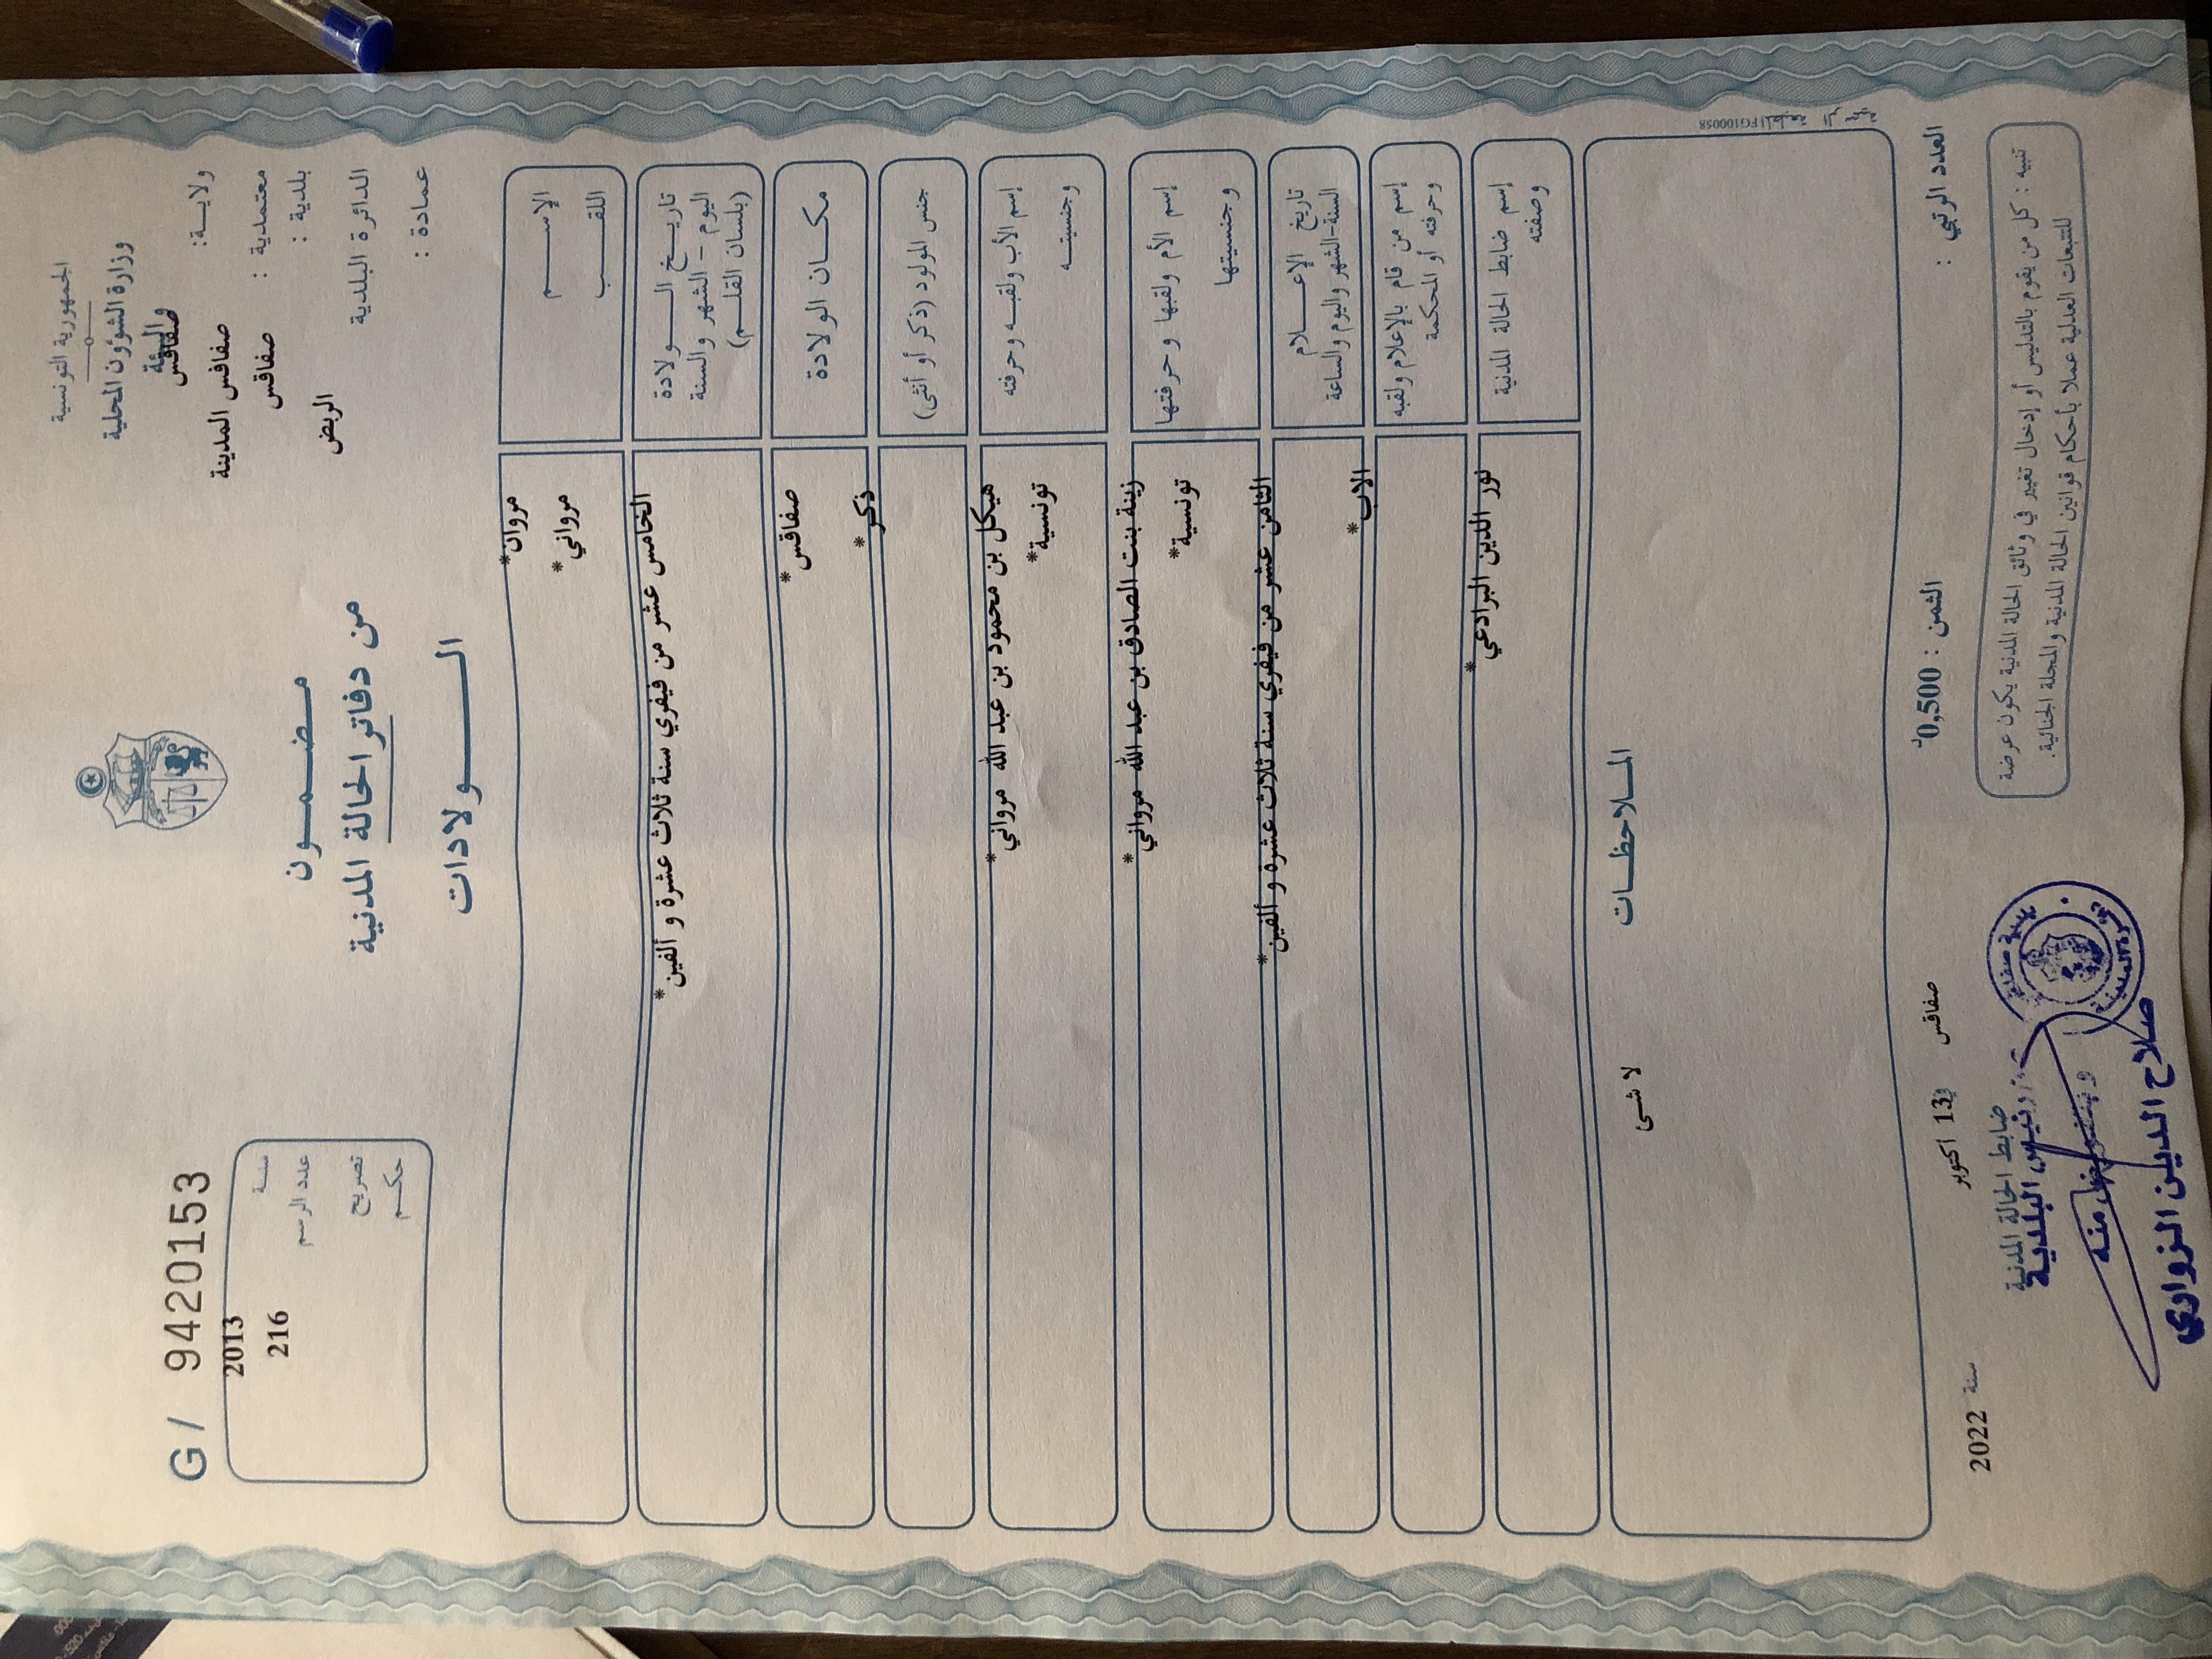 الجمهورية التونسية
وزارة الشؤون المحلية
والبيئة
ولايـــة: صفاقس
معتمدية : صفاقس المدينة
بلدية : صفاقس
الدائرة البلدية الربض
عمادة :
مـضـمـــون
من دفاتر الحالة المدنية
الـــــولادات
G/ 9420153
سنة 2013
عدد الرسم 216
تصريح
حكـم
الإســـم مروان*
اللقـــب مرواني*
تاريـــخ الـــــولادة
اليوم - الشهر والسنة
(بلسان القلـــم)
الخامس عشر من فيفري سنة ثلاث عشرة و ألفين*
مكـــان الولادة
صفاقس*
جنس المولود (ذكر أو أنثى)
ذكر*
إسم الأب ولقبـه وحرفته
وجنسيتـــه
هيكل بن محمود بن عبد الله مرواني*
تونسية*
إسم الأم ولقبها وحرفتها
وجنسيتها
زينة بنت الصادق بن عبد الله مرواني*
تونسية*
تاريخ الإعـــلام
السنة-الشهر واليوم والساعة
الثامن عشر من فيفري سنة ثلاث عشرة و ألفين*
إسم من قام بالإعلام ولقبه
وحرفته أو المحكمة
الاب*
إسم ضابط الحالة المدنية
وصفته
نور الدين البرادعي*
المـلاحظـــات
لا شىء
FG100058
العدد الرتبي :
الثمن : 0,500د
صفاقس في 13 اكتوبر سنة 2022
تنبيه : كل من يقوم بالتدليس أو إدخال تغيير في وثائق الحالة المدنية يكون عرضة
للتتبعات العدلية عملا بأحكام قوانين الحالة المدنية والمجلة الجنائية.
ضابط الحالة المدنية
رئيس البلدية
وبتفويض منه
صلاح الدين الزواري